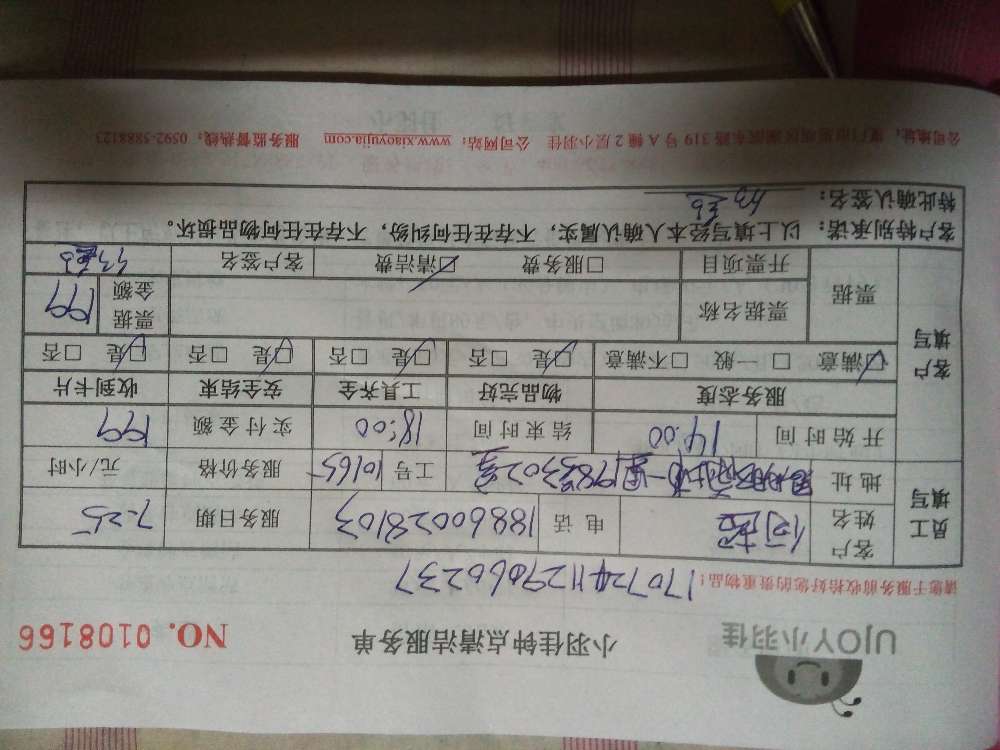 UJOY小羽佳 小羽佳钟点清洁服务单 NO. 0108166
请您于服务前收拾好您的贵重物品! 1707241129066237
员工填写 客户姓名 电话 18860028103 服务日期 7-25
地址 工号 10165 服务价格 元/小时
开始时间 14:00 结束时间 18:00 实付金额 199
客户填写 服务态度 物品完好 工具齐全 安全结束 收到卡片
☑满意 □一般 □不满意 ☑是 □否 ☑是 □否 ☑是 □否 ☑是 □否
票据 票据名称 票据金额 199
开票项目 □服务费 ☑清洁费 客户签名
客户特别承诺: 以上填写经本人确认属实,不存在任何纠纷,不存在任何物品损坏。
特此确认签名:
公司地址: 319号A幢2层小羽佳 公司网站: www.xiaoyujia.com 服务监督热线: 0592-5888123